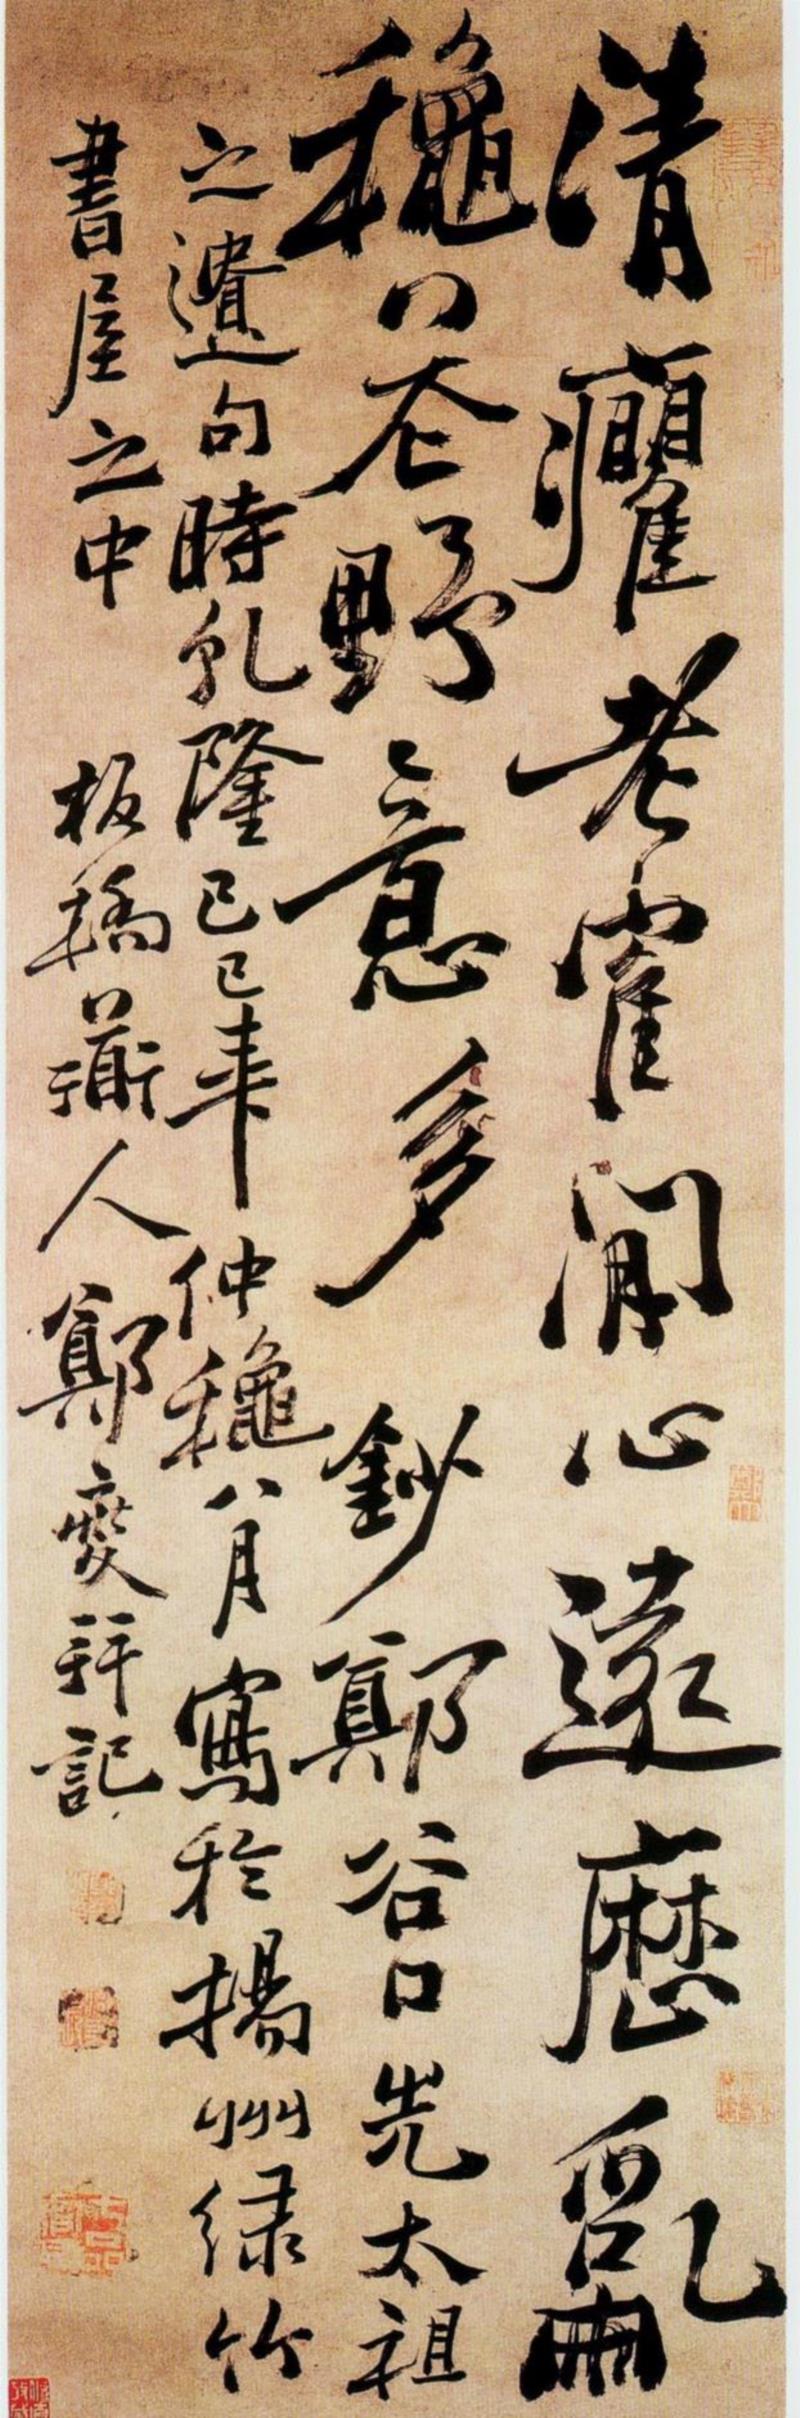 清癯老鶴閒心遠歷亂
龝花野意多鈔鄭谷口先太祖
之遺句時乾隆己巳年仲龝八月寫於揚州绿竹
書屋之中板橋道人鄭燮拜記